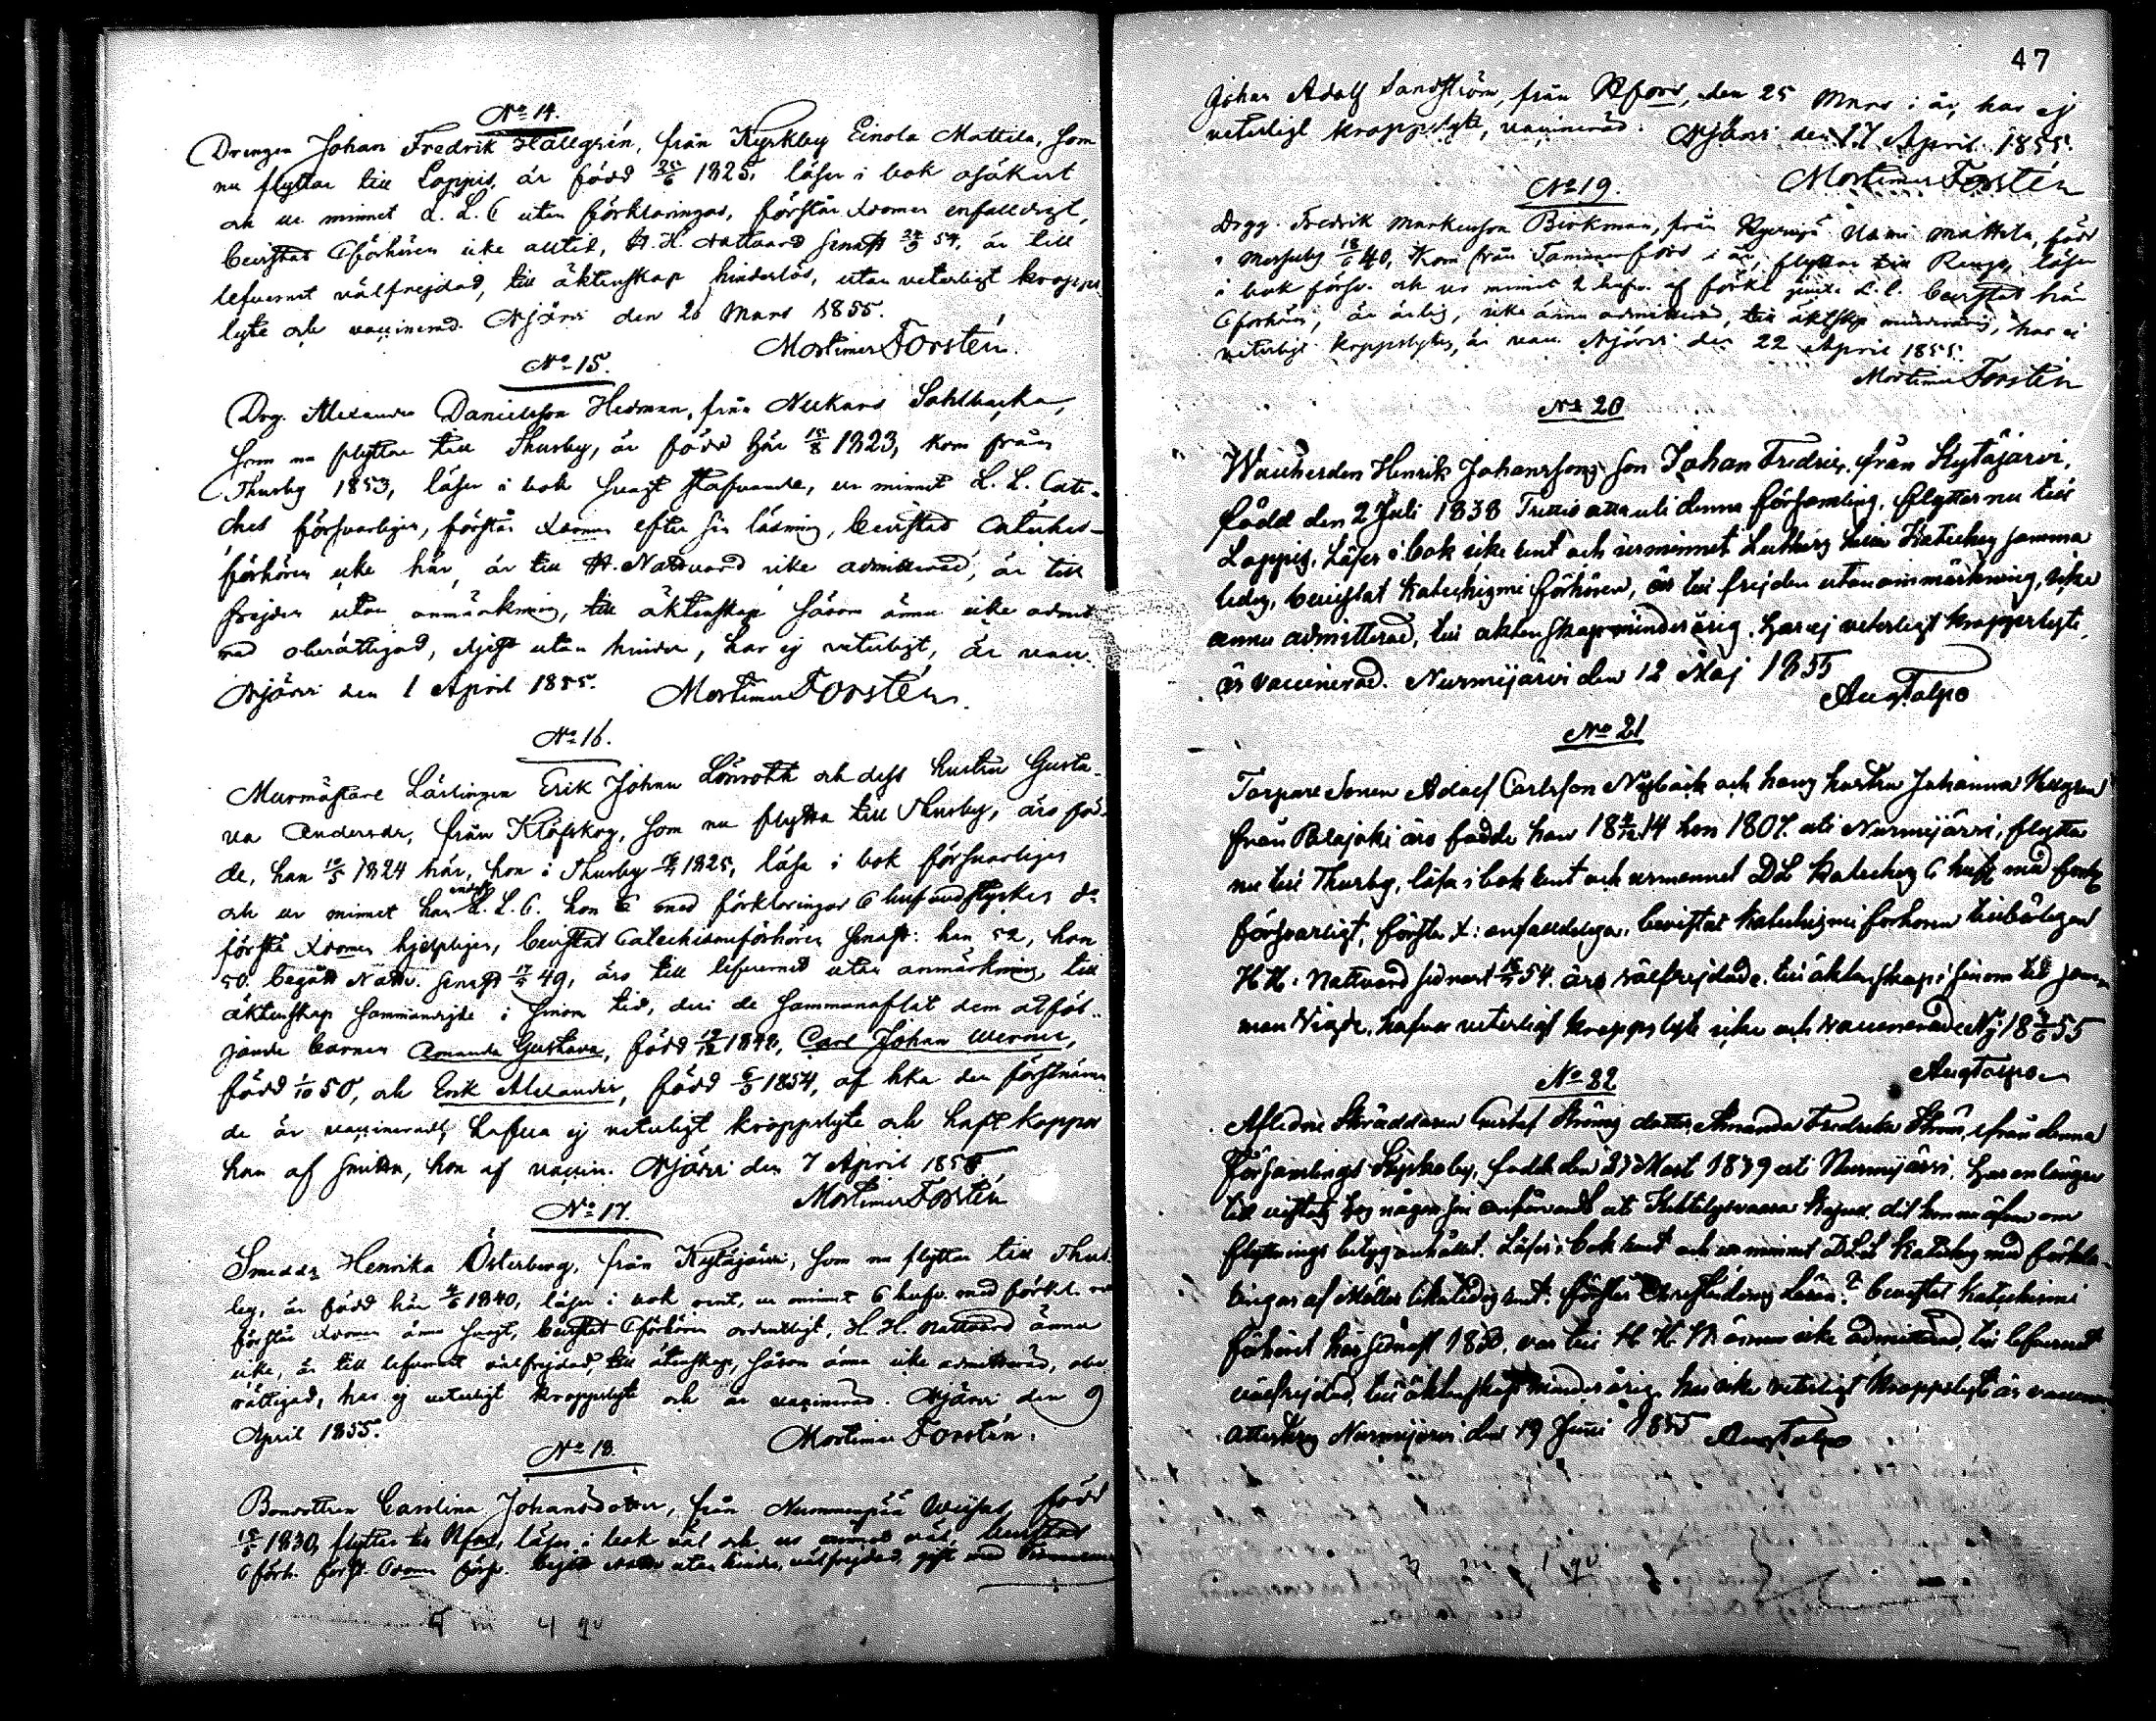 No 14.
Drengen Johan Fredrik Hällgrén, från Kyrkby Einola Mattila, som
nu flyttar till Loppis, är född 25/6 1825, läser i bok osäkert
och ur minnet L. L. C utan förklaringar, förstår Xdomen enfalldigt,
bevistat Cförhören icke alltid, H. H. Nattvard senast 24/9 54, är till
lefvernet välfrejdad, till äktenskap hinderlös, utan veterligt kropps-
lyte och vaccinerad. Njärvi den 26 Mars 1855.
Mortimer Forstén.
No 15.
Drg. Alexander Danielsson Hedman, från Nukars Sahlbacka,
som nu flyttar till Thusby, är född här 15/8 1823, kom från
Thusby 1853, läser i bok svagt stafvande, ur minnet L. L. Cate-
ches försvarligen, förstår Xdomen efter sin läsning, bevistat Cateches-
förhören icke här, är till H. Nattvard icke admitterad, är till
frejden utan anmärkning, till äktenskap såsom ännu icke admitte-
rad oberättigad, utan hinder, har ej veterligt, är vacc.
Njärvi den 1 April 1855. Mortimer Forstén.
No 16.
Murmästare Lärlingen Erik Johan Lönroth och dess hustru Gusta-
va Andersdr, från Klöfskog, som nu flytta till Thusby, äro föd-
de, han 15/5 1824 här, hon i Thusby 1825, läsa i bok försvarligen
och ur minnet han endast L. L. C. hon med förklaringar 6 hufvudstycken &
förstå Xdomen hjelpligen, bevistat Catechismiförhören senast: han 52, hon
50. begått Nattv. senast 17/5 49, äro till lefvernet utan anmärkning, till
äktenskap sammanvigde i sinom tid, deri de sammanaflat dem åtföl-
jande barnen Amanda Gustava, född 19/12 1848, Carl Johan Werner,
född 1/10 50, och Erik Alexander, född 6/3 1854, af hka den förstnäm-
de är vaccinerad, hafva ej veterligt kroppslyte och haft koppor
han af smitta, hon af vaccin. Njärvi den 7 April 1855
Mortimer Forstén
No 17.
Smeddr Henrika Österberg, från Kytäjärvi, som nu flyttar till Thus-
by, är född här 4/6 1840, läser i bok rent, ur minnet 6 hufv. med förkl.
förstår Xdomen ännu svagt, bevistat Cförhören ordentligt, H. H. Nattvard ännu
icke, är till lefvernet välfrejdad, till äktenskap, såsom ännu icke admitterad, obe-
rättigad, har ej veterligt kroppslyte och är vaccinerad. Njärvi den 9
April 1855. Mortimer Forstén.
No 18.
Bondottren Carolina Johansdotter, från Nummenpää född
15/5 1830, flyttar till Hfors, läser i bok väl och ur minnet väl, bevistat
Cförh. först. Xdomen försv. begått Nattv. utan hinder, välfrejdad, gift med
47
Johan Adolf Sandström, från Hfors, den 25 Mars i år, har ej
veterligt kroppslyte, vaccinerad. Njärvi den 17 April 1855.
Mortimer Forstén
No 19.
Drgg. Fredrik Markusson Birkman, från Mattila, född
i 18/6 40, kom från Tammerfors i år, flyttar till Renge, läser
i bok försv. och ur minnet 2 hufv. af förkl. L. C. bevistat här
Cförhören, är ärlig, icke ännu admitterad, till äktskp minderårig, har ej
veterligt kroppslyte, är vacc. Njärvi den 22 April 1855.
Mortimer Forstén
No 20
Henrik Johanssons son Johan Fredrik från Kytäjärvi,
född den 2 Juli 1838 Trettio åtta uti denna församling, flyttar nu till
Loppis, Läser i bok icke rent och ur minnet Luthers Katechis samma
ledes, bevistat Katechismi förhören, är till frejden utan anmärkning, icke
ännu admitterad, till äktenskap minderårig. har ej veterligt kroppslyte,
är vaccinerad. Nurmijärvi den 12 Maj 1855
Aug Talpo
No 21
Torpare Sonen Adolf Carlsson Nybäck och hans hustru Johanna
från Palajoki äro födde han 14 hon 1807. uti Nurmijärvi, flytta
nu till Thusby, läsa i bok rent och ur minnet DL Kateches 6 huf. med förkl.
försvarligt, förstå X: enfalldeligen, bevistat Katechismi förhören tillbörligen
H. H. Nattvard sednast 54. äro välfrejdade, till äktenskap i sinom tid sam-
man Vigde. hafva veterligt kroppslyte icke och vaccinerade Nj 18 55
Aug Talpo
No 22
Aflidne Skräddaren Gustaf Ströms dotter, Amanda Fredrika Ström, från denna
församlings Kyrkoby, född den 27 Mart 1839 uti Nurmijärvi, har en längre
tid vistats hos någon sin anförvandt uti dit hon nu äfven om
flyttnings betyg anhållit. Läser i bok rent och ur minnet D L Kateches med förkla-
ringar af Möller likaledes rent. förstår Christendoms Läran? bevistat Katechismi
förhöret här sednast var till H. H. N ännu icke admitterad, till lefvernet
välfrejdad, till äktenskap minderårig, har icke veterligt kroppslyte är vaccinerad
Attesterar Nurmijärvi den 19 Juni 1855 Aug Talpo